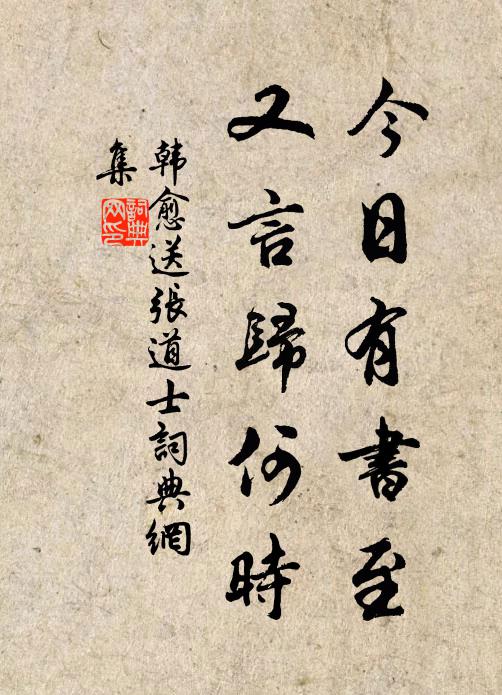 今日有書至
又言歸何時
韩愈送張道士詞典網
集
詞典
网印